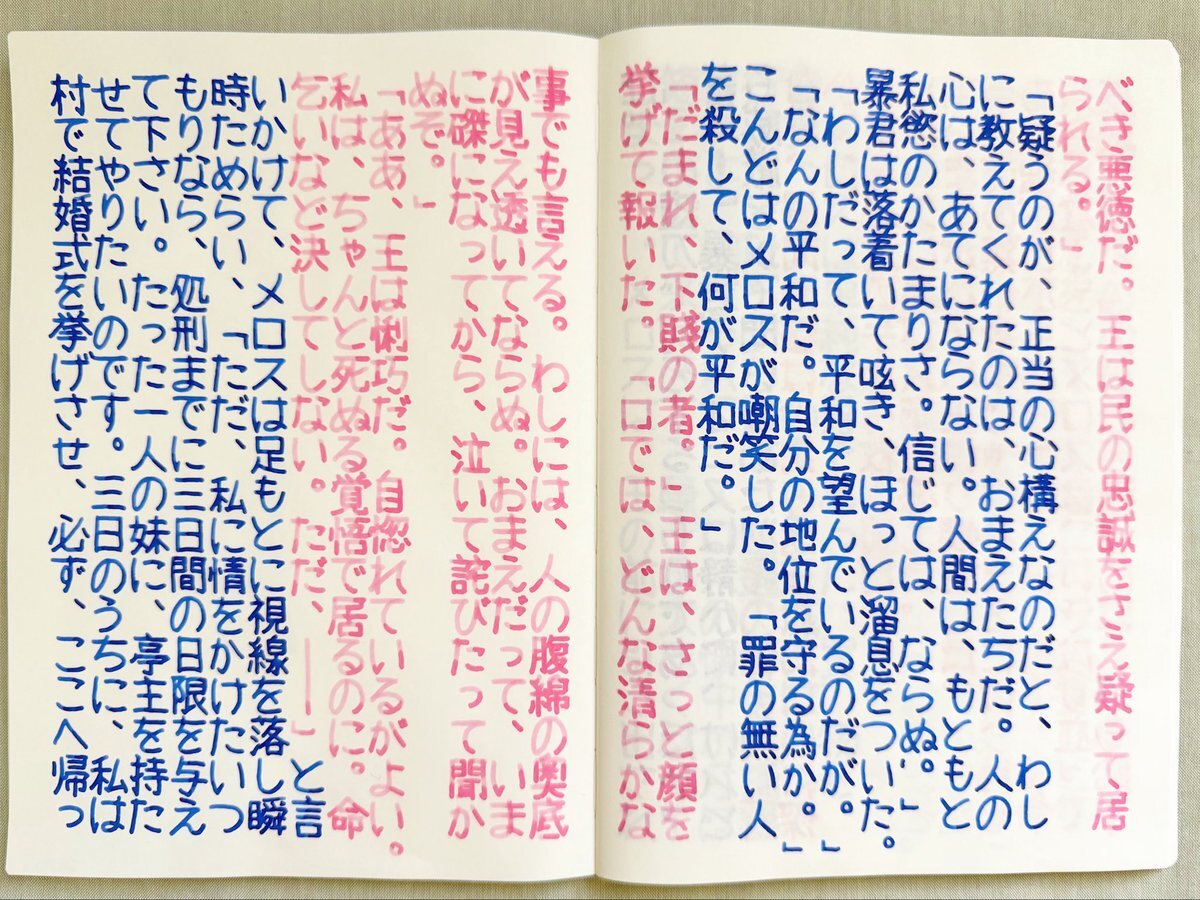 べき悪徳だ。王は民の忠誠をさえ疑って居
られる。」
「疑うのが、正当の心構えなのだと、わし
に教えてくれたのは、おまえたちだ。人の
心は、あてにならない。人間は、もともと
私慾のかたまりさ。信じては、ならぬ。」
暴君は落着いて呟き、ほっと溜息をついた。
「わしだって、平和を望んでいるのだが。」
「なんの平和だ。自分の地位を守る為か。」
こんどはメロスが嘲笑した。「罪の無い人
を殺して、何が平和だ。」
「だまれ、下賤の者。」王は、さっと顔を
挙げて報いた。「口では、どんな清らかな
事でも言える。わしには、人の腹綿の奥底
が見え透いてならぬ。おまえだって、いま
に磔になってから、泣いて詫びたって聞か
ぬぞ。」
「ああ、王は悧巧だ。自惚れているがよい。
私は、ちゃんと死ぬる覚悟で居るのに。命
乞いなど決してしない。ただ、――」と言
いかけて、メロスは足もとに視線を落し瞬
時ためらい、「ただ、私に情をかけたいつ
もりなら、処刑までに三日間の日限を与え
て下さい。たった一人の妹に、亭主を持た
せてやりたいのです。三日のうちに、私は
村で結婚式を挙げさせ、必ず、ここへ帰っ